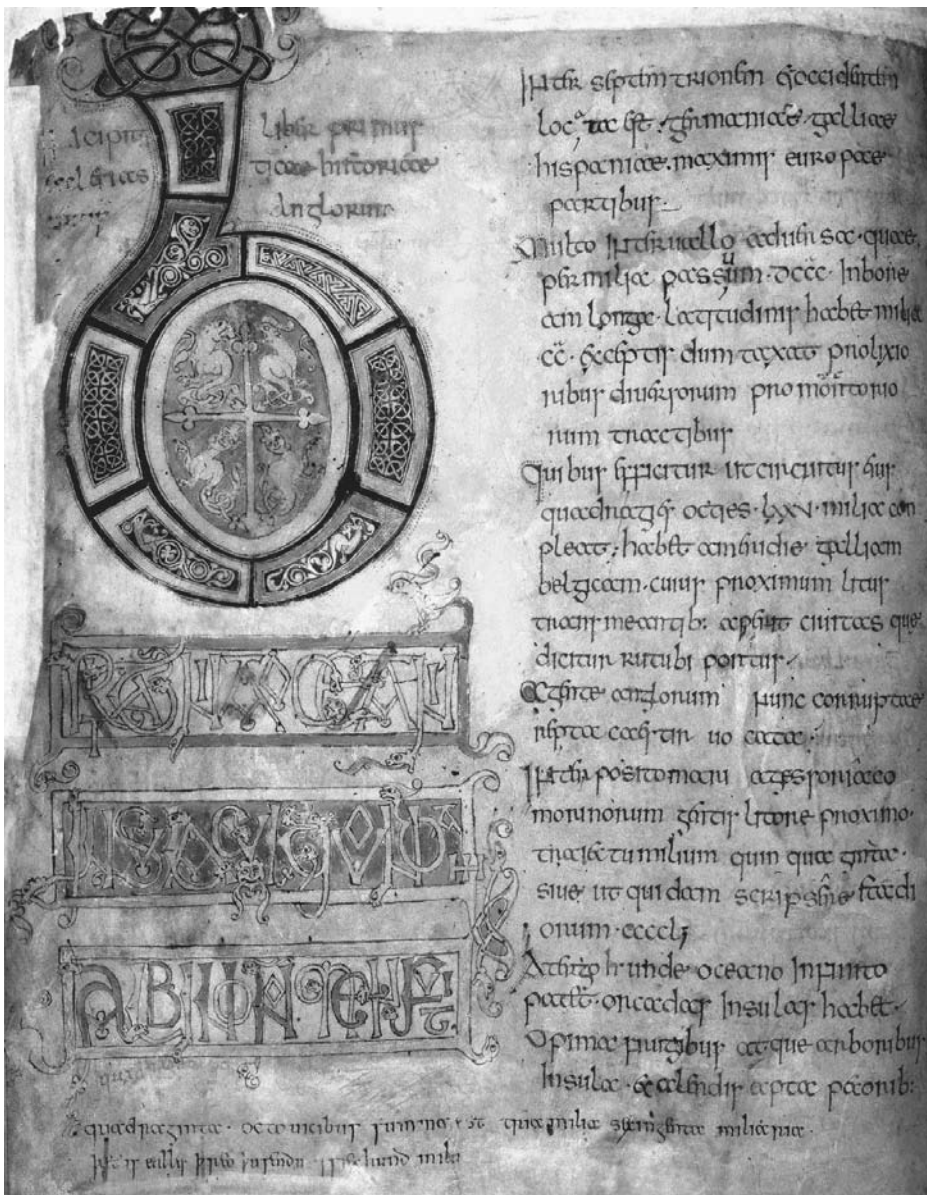 Incipit liber primus
ecclesias ticae historicae
Anglorum
b
INSULA
ALBION FUIT
Inter septemtrionem & occidentem
locata est · germaniae · galliae
hispaniae · maximis europae
partibus
Multo interuallo aduersa · quae
per milia passuum · dccc · in bore
am longa · latitudinis habet milia
cc · exceptis dum taxat prolixio
ribus diuersorum promontorio
rum tractibus
Quibus efficitur ut circuitus eius
quadragies octies · lxxv · milia con
pleat · habet a meridie galliam
belgicam · cuius proximum litus
transmeantib: aperit ciuitas que
dicitur rutubi portus
A gente anglorum nunc corruptae
reptacaestir uocata
Interposito mari a gesoriaco
morinorum gentis litore proximo ·
traiectu milium quinquaginta ·
siue ut quidam scripsere stadi
orum · ccccl
A tergo unde oceano Infinito
patet · orcadas Insulas habet ·
Opima frugibus atque arboribus
Insula · & alendis apta pecorib:
quadraginta · octo uicibus tria milia milia
þæt is ealles þreo þusendu hund mila